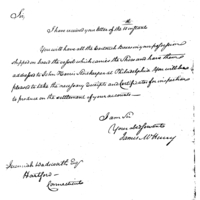 Sir,
I have received your letter of the 10 instant
You will have all the
shipped on board the vessel which carries the Shoes and have them
address to John Harris Storekeeper at Philadelphia. You will have
pleased to take the necessary receipts and certificates for inspection
to produce on the settlement of your accounts.
I am Sir
Your Obd Servant
James McHenry
Jeremiah Wadsworth Esqr
Hartford
Connecticut